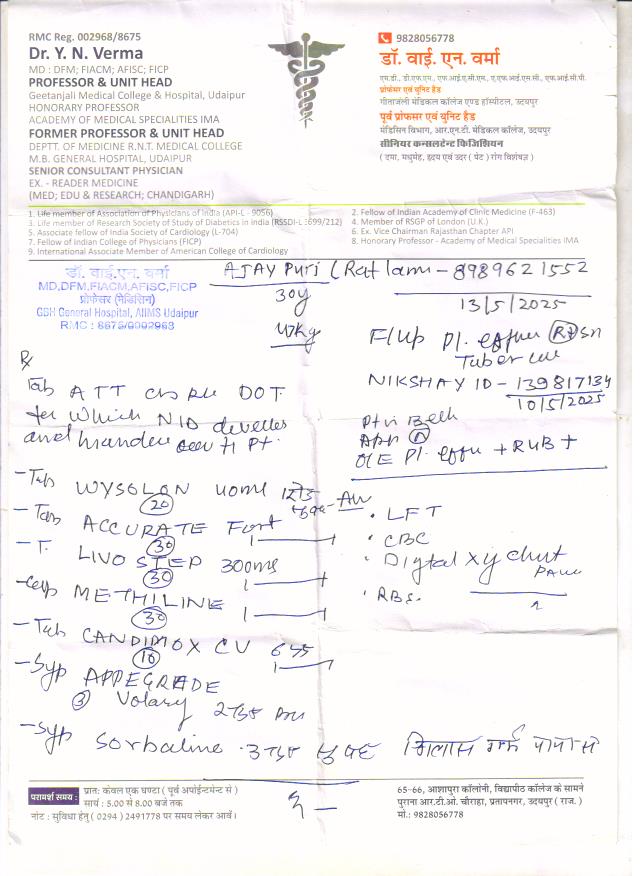 RMC Reg. 002968/8675
Dr. Y. N. Verma
MD : DFM; FIACM; AFISC; FICP
PROFESSOR & UNIT HEAD
Geetanjali Medical College & Hospital, Udaipur
HONORARY PROFESSOR
ACADEMY OF MEDICAL SPECIALITIES IMA
FORMER PROFESSOR & UNIT HEAD
DEPTT. OF MEDICINE R.N.T. MEDICAL COLLEGE
M.B. GENERAL HOSPITAL, UDAIPUR
SENIOR CONSULTANT PHYSICIAN
EX. - READER MEDICINE
(MED; EDU & RESEARCH; CHANDIGARH)
9828056778
डॉ. वाई. एन. वर्मा
एम.डी., डी.एफ.एम., एफ.आई.ए.सी.एम., ए.एफ.आई.एस.सी., एफ.आई.सी.पी.
प्रोफेसर एवं युनिट हैड
गीतांजली मेडिकल कॉलेज एण्ड हॉस्पिटल, उदयपुर
पूर्व प्रोफेसर एवं युनिट हैड
मेडिसिन विभाग, आर.एन.टी. मेडिकल कॉलेज, उदयपुर
सीनियर कन्सलटेन्ट फिजिशियन
( दमा, मधुमेह, हृदय एवं उदर ( पेट ) रोग विशेषज्ञ )
1. Life member of Association of Physicians of India (API-L - 9056)
2. Fellow of Indian Academy of Clinic Medicine (F-463)
3. Life member of Research Society of Study of Diabetics in India (RSSDI-L 3699/212)
4. Member of RSGP of London (U.K.)
5. Associate fellow of India Society of Cardiology (L-704)
6. Ex. Vice Chairman Rajasthan Chapter API
7. Fellow of Indian College of Physicians (FICP)
8. Honorary Professor - Academy of Medical Specialities IMA
9. International Associate Member of American College of Cardiology
डॉ. वाई.एन. वर्मा
MD,DFM,FIACM,AFISC,FICP
प्रोफेसर (मेडिसिन)
GBH General Hospital, AIIMS Udaipur
RMC : 8675/0002968
AJAY Puri (Ratlam - 8989621552
30y
13/5/2025
F/up Pl. effun
Tuber
NIKSHAY ID - 139817134
10/5/2025
Rx
Tab ATT DOT
for which NID
and
O/E Pl. effu + RUB +
- Tab WYSOLON
20
- Tab ACCURATE Fort
30
- T. LIVOSTEP 300mg
30
- Cap METHILINE
30
- Tab CANDIMOX CV 625
10
- Syp APPEGRADE
3
- Syp Sorbaline
• LFT
• CBC
• Digital Xy chest
• RBS.
परामर्श समय :
प्रात: केवल एक घण्टा ( पूर्व अपॉइन्टमेन्ट से )
सायं : 5.00 से 8.00 बजे तक
नोट : सुविधा हेतु ( 0294 ) 2491778 पर समय लेकर आवें।
65-66, आशापुरा कॉलोनी, विद्यापीठ कॉलेज के सामने
पुराना आर.टी.ओ. चौराहा, प्रतापनगर, उदयपुर ( राज. )
मो.: 9828056778